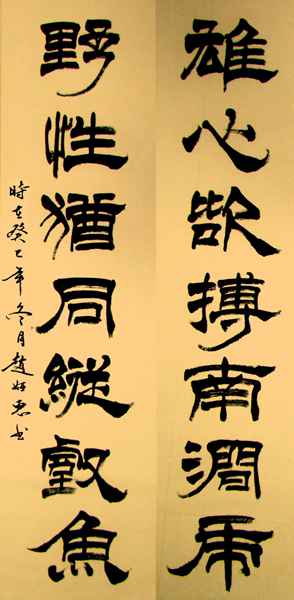 雄心欲搏南澗虎
野性猶同縱壑魚
時在癸巳年冬月趙惠书